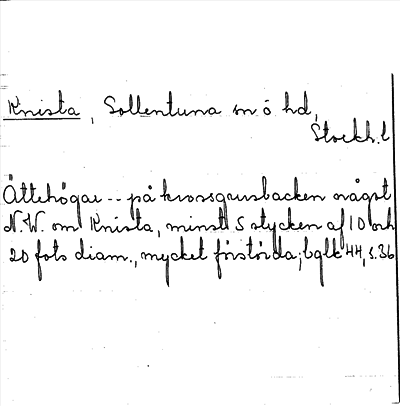 Knista, Sollentuna sn ö hd,
Stockh.l
Ättehögar -- på krossgrusbacken något
N.W. om Knista, minst 5 stycken af 10 och
20 fots diam., mycket förstörda; bglk 44, s.36